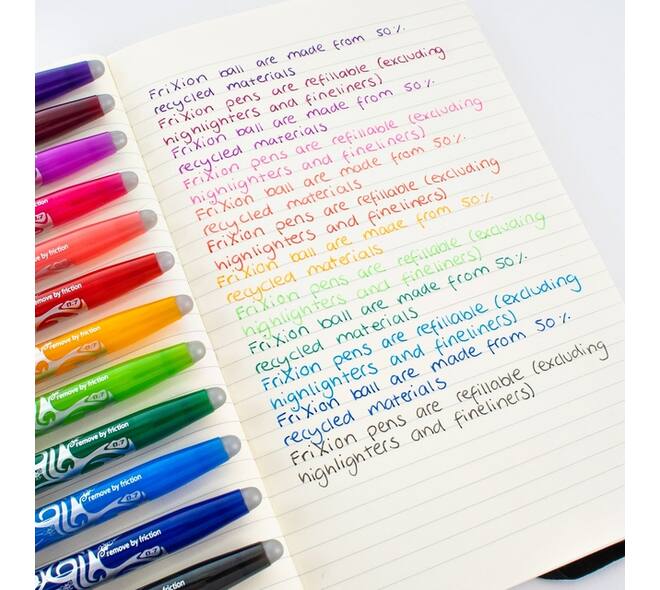 FriXion ball are made from 50%
recycled materials
FriXion pens are refillable (excluding
highlighters and fineliners)
FriXion ball are made from 50%
recycled materials
FriXion pens are refillable (excluding
highlighters and fineliners)
FriXion ball are made from 50%
recycled materials
FriXion pens are refillable (excluding
highlighters and fineliners)
FriXion ball are made from 50%
recycled materials
FriXion pens are refillable (excluding
highlighters and fineliners)
FriXion ball are made from 50%
recycled materials
FriXion pens are refillable (excluding
highlighters and fineliners)
FriXion ball are made from 50%
recycled materials
FriXion pens are refillable (excluding
highlighters and fineliners)
remove by friction
remove by friction
0.7
remove by friction
0.7
remove by friction
0.7
remove by friction
0.7
remove by friction
0.7
remove by friction
0.7
friction